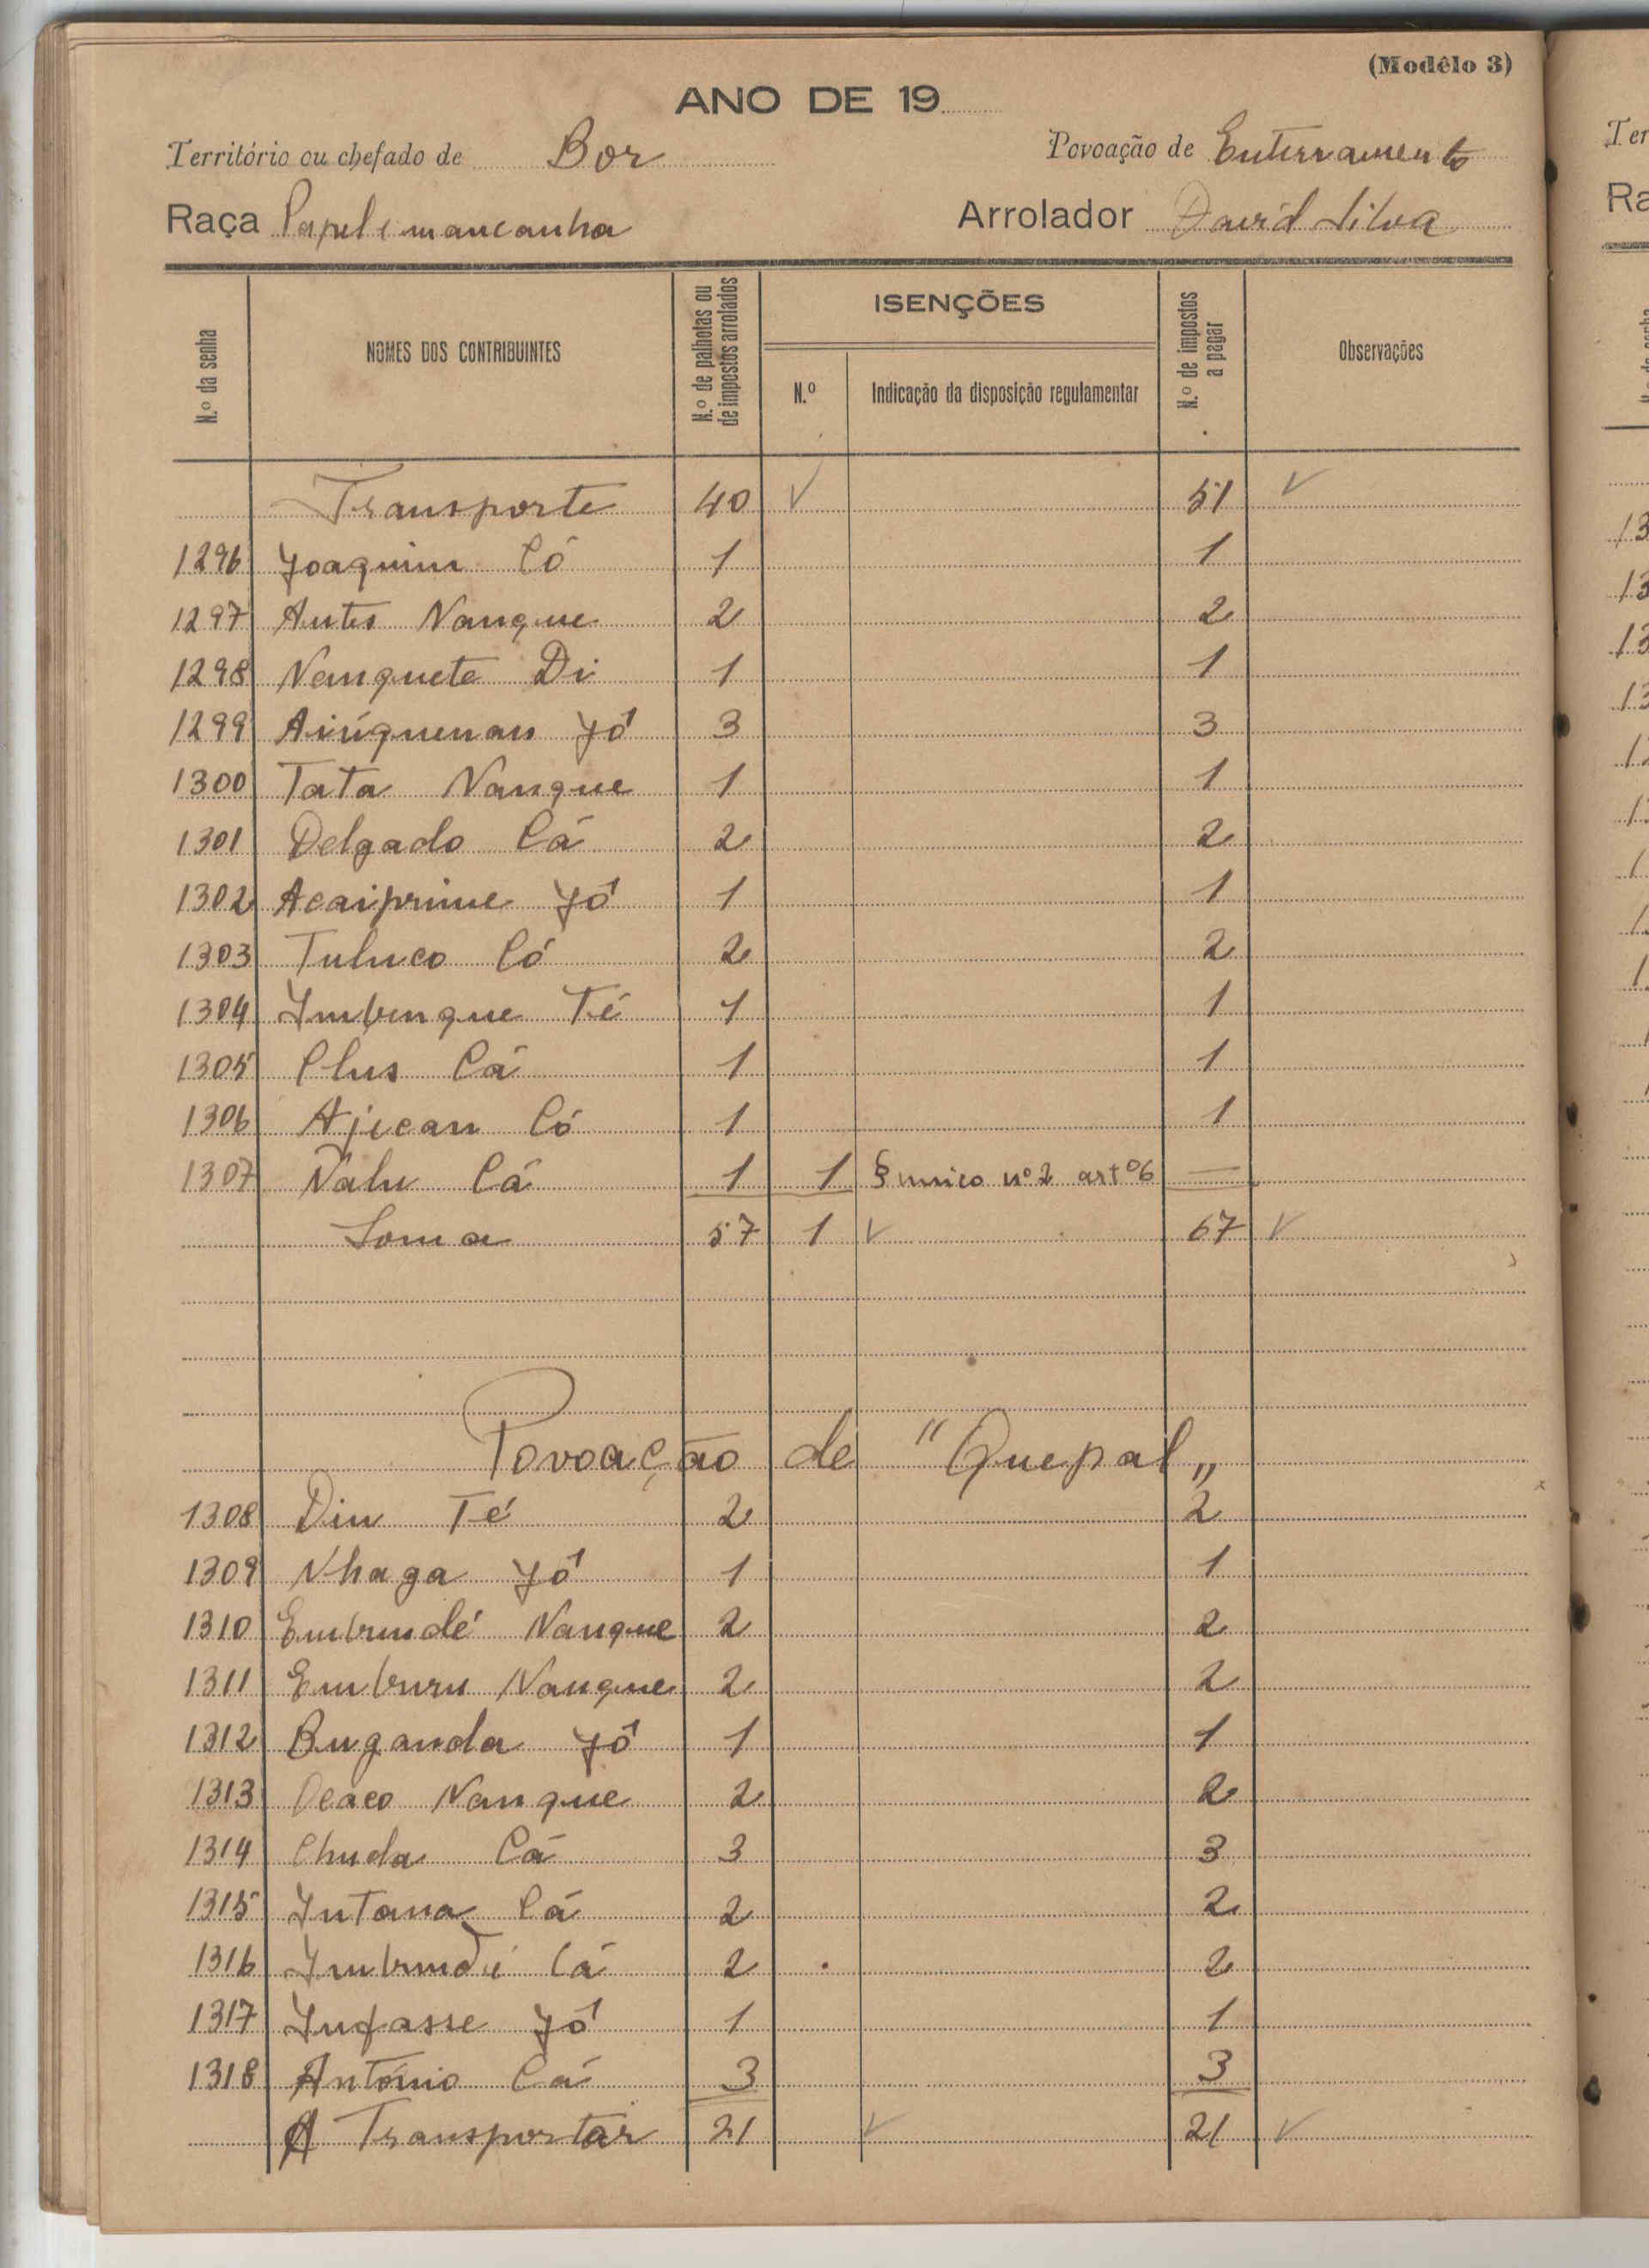 (Modêlo 3)
ANO DE 19
Território ou chefado de Bor Povoação de Enterramento
Raça Papel e mancanha Arrolador David Silva
N.º da senha NOMES DOS CONTRIBUINTES N.º de palhotas ou de impostos arrolados ISENÇÕES N.º Indicação da disposição regulamentar N.º de impostos a pagar Observações
Transporte 40 51
1296 Joaquim Có 1 1
1297 Antes Nanque 2 2
1298 Nanquete Di 1 1
1299 Jó 3 3
1300 Tata Nanque 1 1
1301 Delgado Cá 2 2
1302 Acaiprime Jó 1 1
1303 Tuluco Có 2 2
1304 Imbunque Té 1 1
1305 Clus Cá 1 1
1306 Ajucan Có 1 1
1307 Nalu Cá 1 1 § unico nº 2 artº 6 —
Soma 57 1 67
Povoação de "Quepal"
1308 Din Té 2 2
1309 Nhaga Jó 1 1
1310 Embundé Nanque 2 2
1311 Emburu Nanque 2 2
1312 Buganda Jó 1 1
1313 Ocaco Nanque 2 2
1314 Chuda Cá 3 3
1315 Intana Cá 2 2
1316 Cá 2 2
1317 Infasse Jó 1 1
1318 António Cá 3 3
A Transportar 21 21